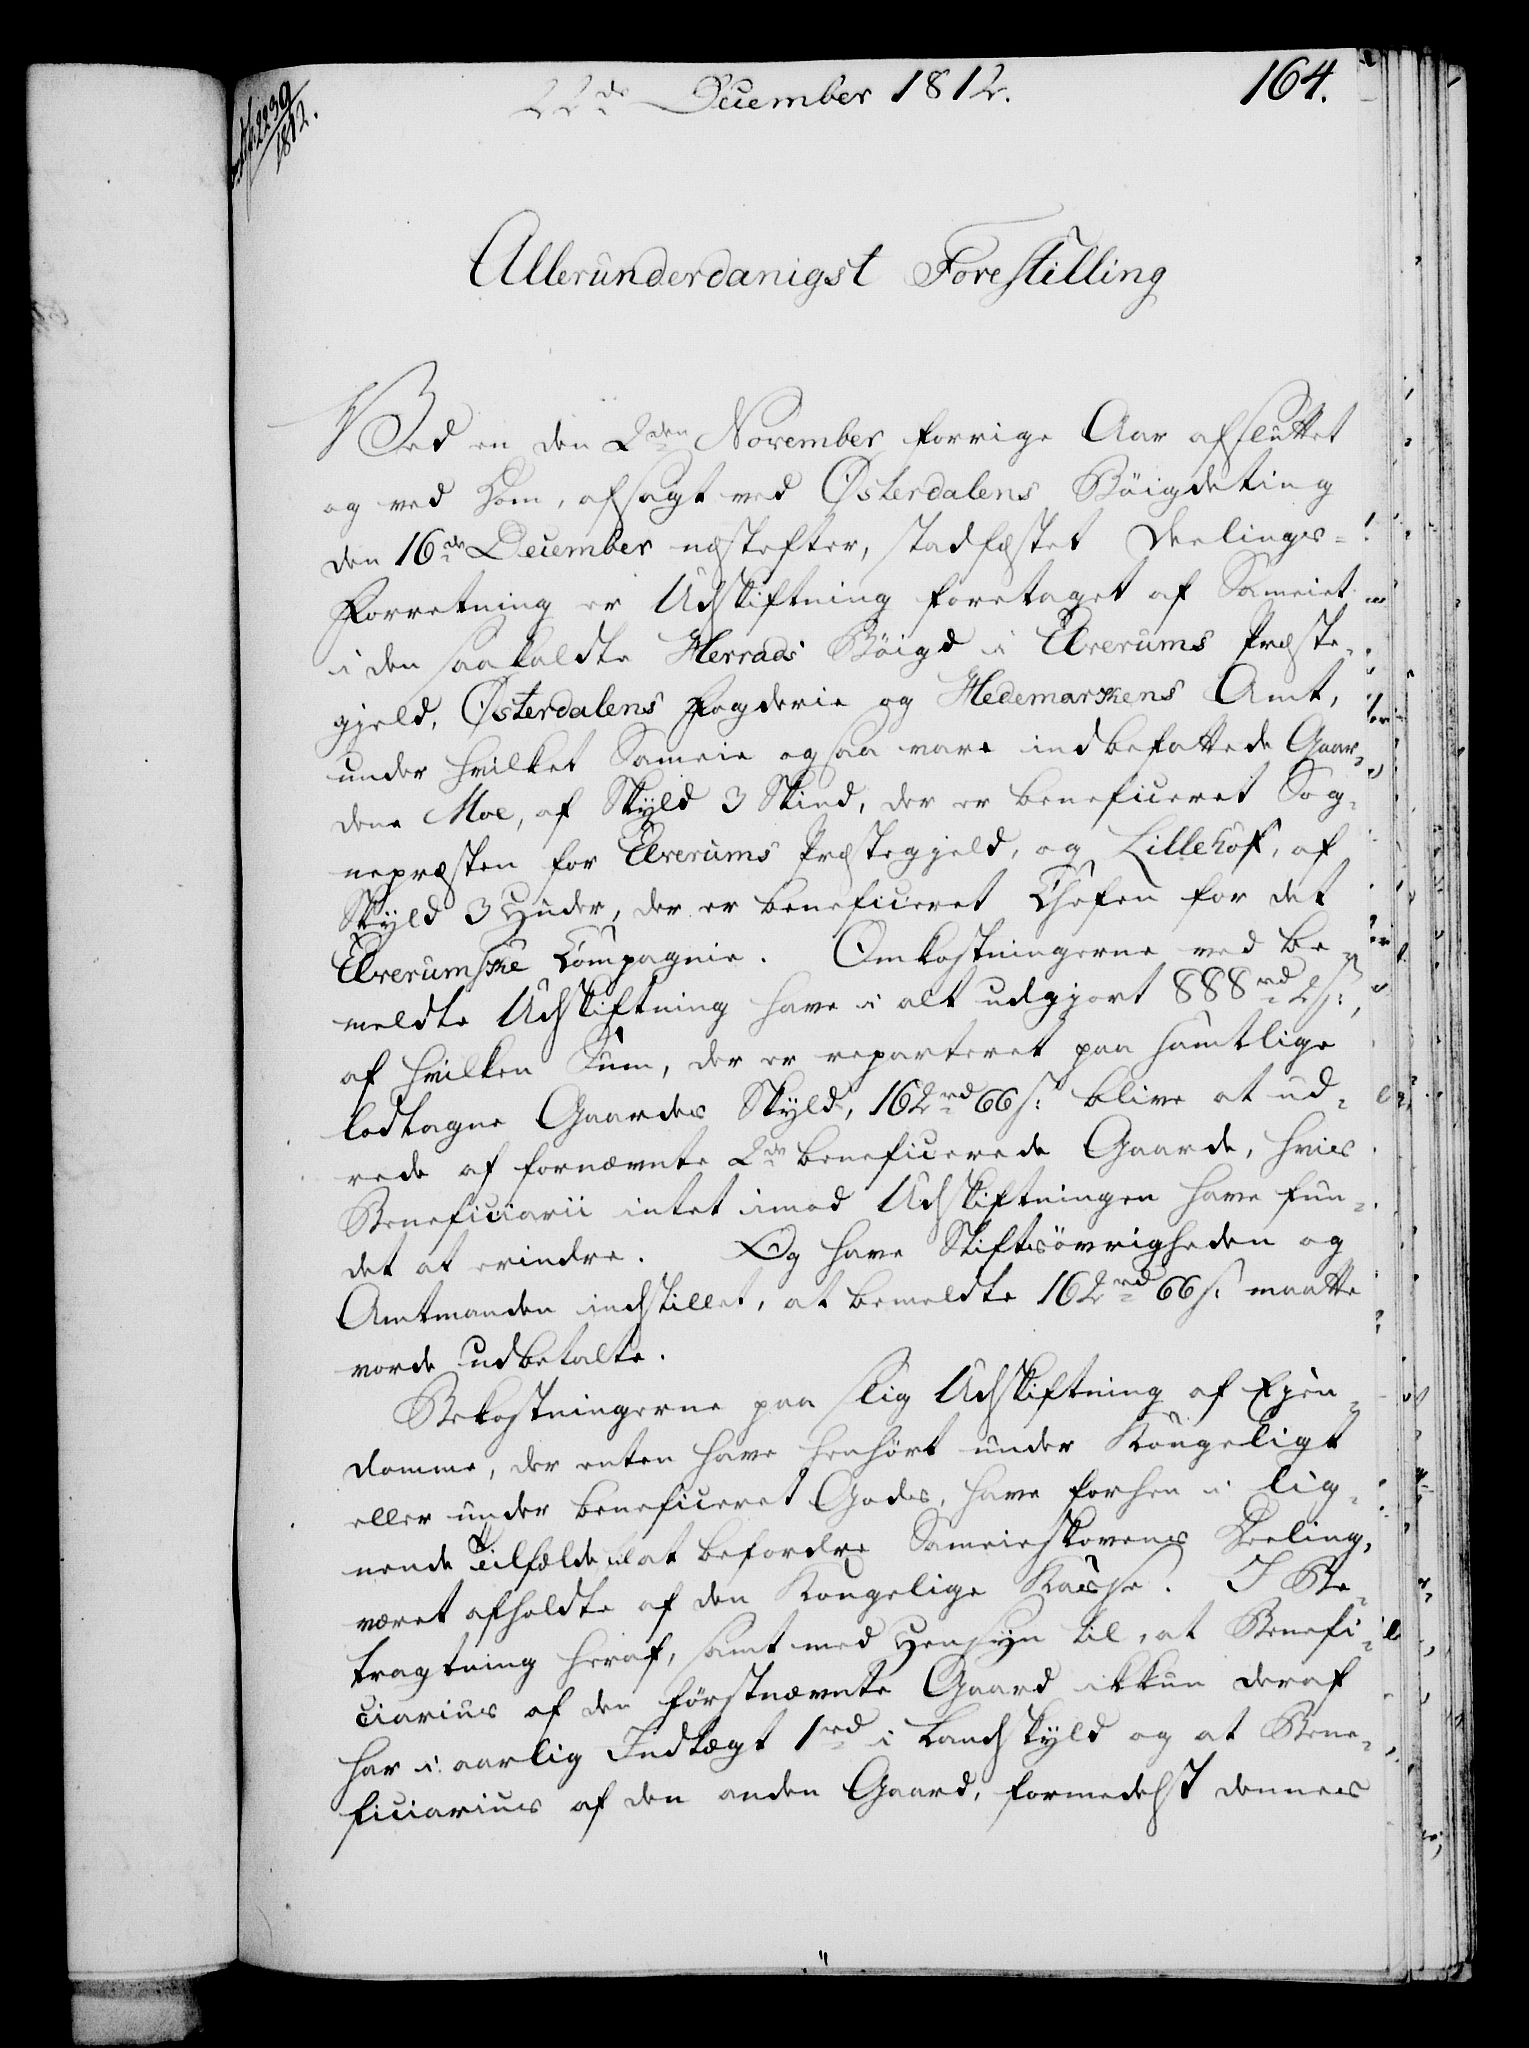 2239
1812.
22de December 1812.
164.
Allerunderdanigst Forestilling
Ved en den 2den November forrige Aar afsluttet
og ved Dom, afsagt ved Østerdalens Böigdeting
den 16de December næstefter, stadfæstet Deelings-
Forretning er Udskiftning foretaget af Sameiet
i den saakaldte Herrads Böigd i Elverums Præste-
gjeld, Østerdalens Fogderie og Hedemarkens Amt,
under hvilket Sameie ogsaa vare indbefattede Gaar-
dene Moe, af Skyld 3 Skind, der er beneficeret Sog-
nepræsten for Elverums Præstegjeld, og Lillehof, af
Skyld 3 Huder, der er beneficeret Chefen for det
Elverumske Compagnie. Omkostningerne ved be-
meldte Udskiftning have i alt udgjort 888rd 2s:,
af hvilken Sum, der er reparteret paa samtlige
lodtagne Gaardes Skyld, 162rd 66s: blive at ud-
rede af fornævnte 2de beneficerede Gaarde, hvis
Beneficiarii intet imod Udskiftningen have fun-
det at erindre. Og have Stiftsövrigheden og
Amtmanden indstillet, at bemeldte 162rd 66s: maatte
vorde udbetalte.
Bekostningerne paa slig Udskiftning af Ejen-
domme, der enten have henhört under Kongeligt
eller under beneficeret Gods, have forhen i lig-
nende Tilfælde til at befordre Sameieskovens Deeling,
været afholdte af den Kongelige Kasse. I Be-
tragtning heraf, samt med Hensyn til, at Benefi-
ciarius af den förstnævnte Gaard ikkun deraf
har i aarlig Indtægt 1rd i Landskyld og at Bene-
ficiarius af den anden Gaard, formedelst dennes